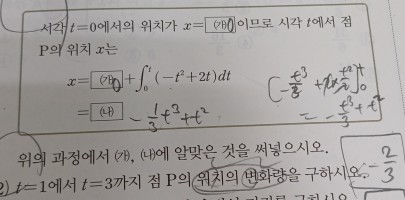 시각 t=0에서의 위치가 x= (가) 0 이므로 시각 t에서 점
P의 위치 x는
x= (가) 0 +∫₀ᵗ(−t²+2t)dt
= (나) −1/3t³+t²
= −t³/3+t²
위의 과정에서 (가), (나)에 알맞은 것을 써넣으시오.
2) t=1에서 t=3까지 점 P의 위치의 변화량을 구하시오. −2/3